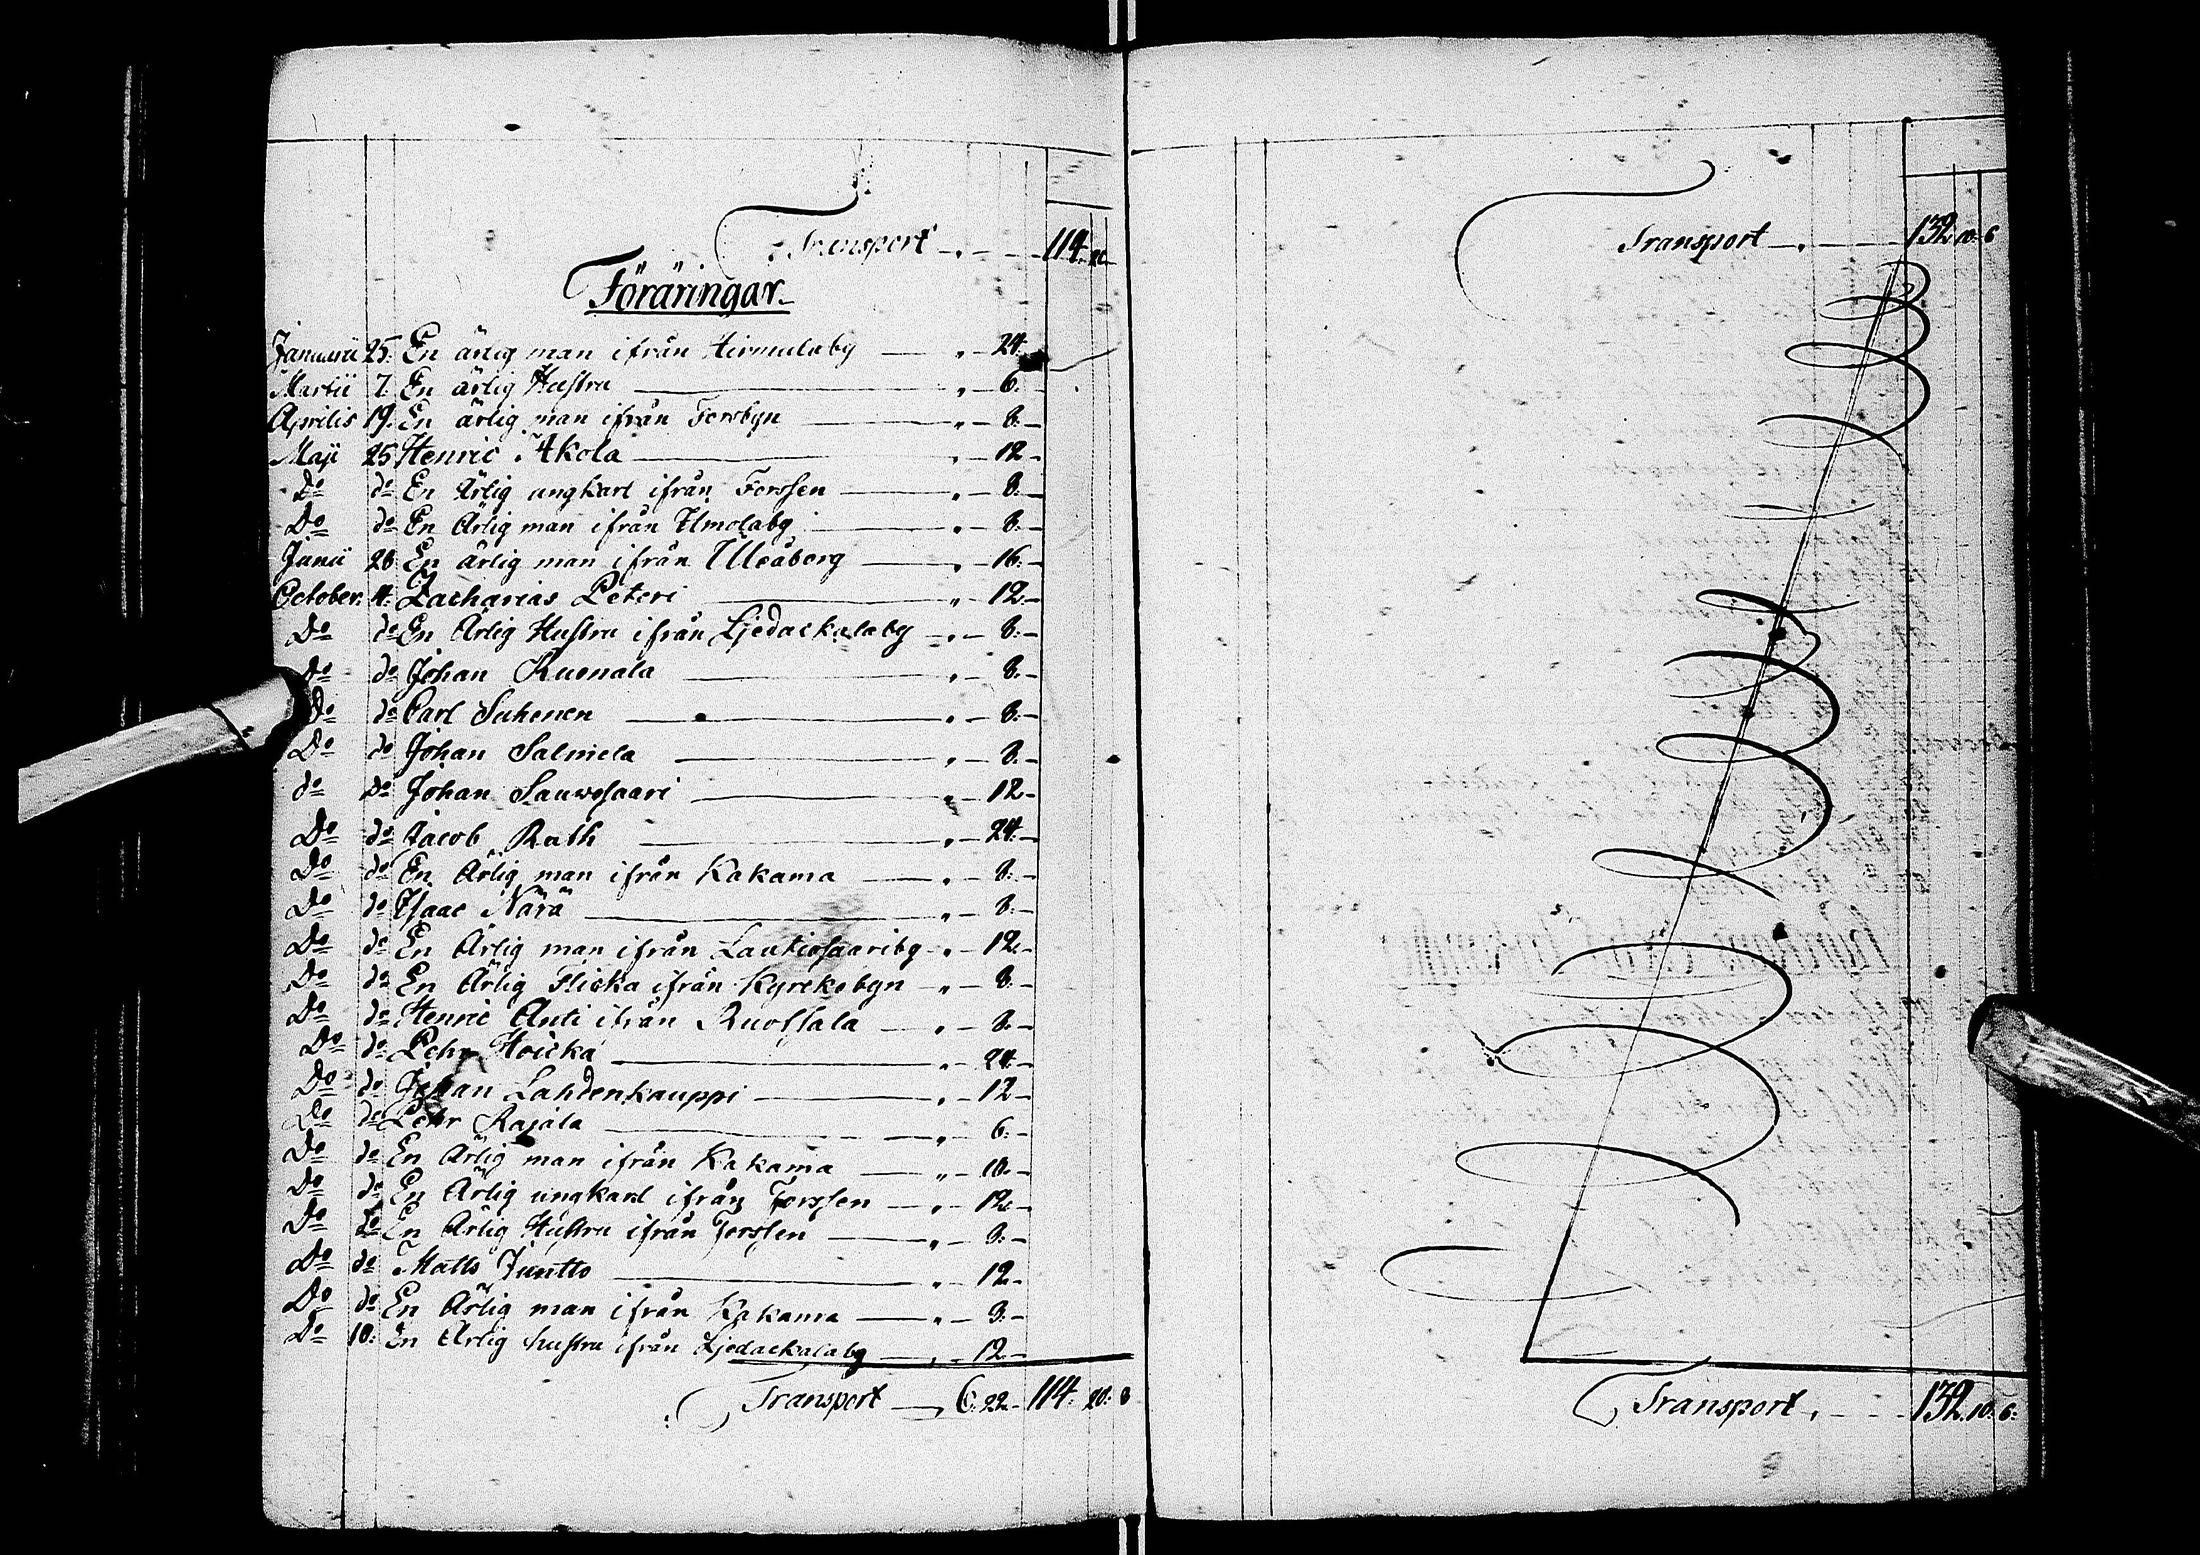 Transport „ 114. 20
Föräringar.
Januarii 25. En ärlig man ifrån Airmulaby „ 24.
Martii 7. En ärlig Hustru „ 6.
Aprilis 19. En ärlig man ifrån Forsbyn „ 8.
Maji 25 Henric Akola „ 12
Do do En Ärlig ungkarl ifrån Forssen „ 8.
Do do En Ärlig man ifrån Umolaby „ 8.
Junii 28 En ärlig man ifrån Uleåborg „ 16.
October. 4. Zacharias Peteri „ 12
Do do En Ärlig Hustru ifrån Ljedackalaby „ 8.
Do do Johan Kuonala „ 8.
Do do Carl Suhonen „ 8.
Do do Johan Salmela „ 8.
do Do Johan Sauwosaari „ 12
Do do Jacob Rath „ 24.
Do do En Ärlig man ifrån Kakama „ 8.
Do do Isaac Närä „ 8.
Do do En Ärlig man ifrån Lautiosaariby „ 12.
Do do En Ärlig Flicka ifrån Kyrckobyn „ 8.
Do do Henric Anti ifrån Ruossala „ 8.
Do do Pehr Hoicka „ 24.
Do do Johan Lahdenkauppi „ 12
Do do Pehr Rajala „ 6.
Do do En Ärlig man ifrån Kakama „ 10.
Do do En Ärlig ungkarl ifrån Forssen „ 12.
Do do En Ärlig Hustru ifrån Forssen „ 8.
Do do Matts Juntto „ 12
Do do En Ärlig man ifrån Kakama „ 8.
Do 10: En Ärlig hustru ifrån Ljedackalaby „ 12
Transport 6. 22 114. 20. 8
Transport „ 132 10. 6
Transport „ 132. 10. 6.